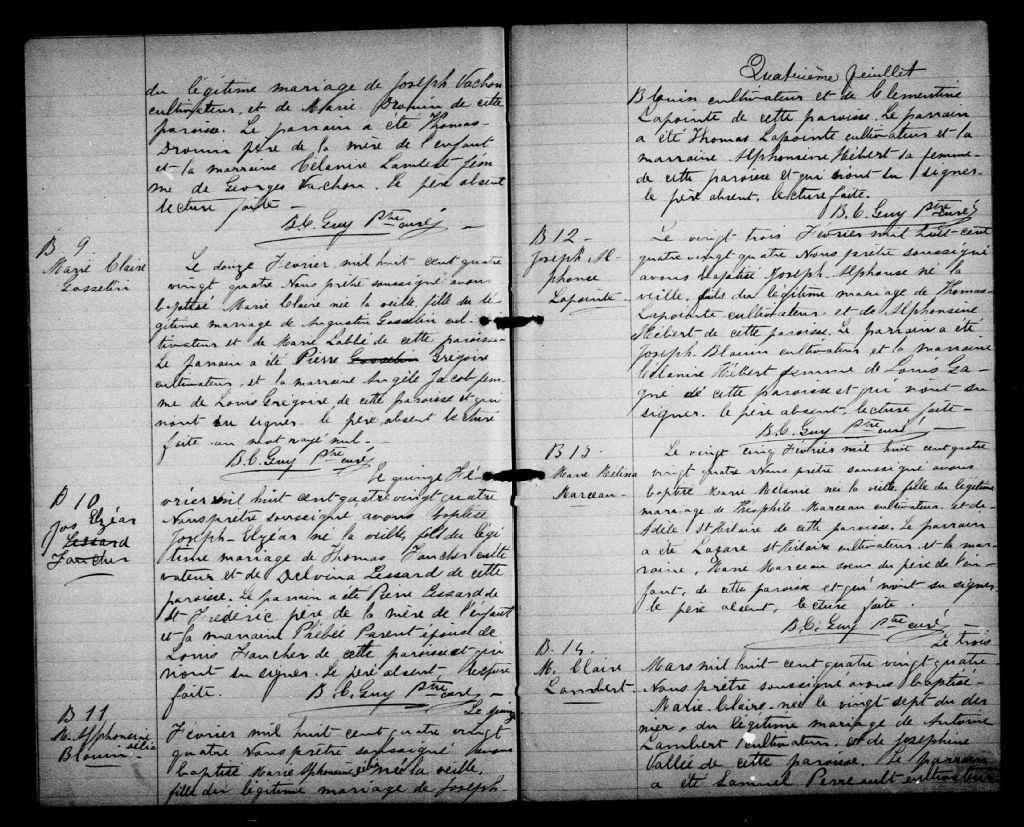 du légitime mariage de Joseph Vachon
cultivateur, et de Marie Drouin de cette
paroisse. Le parrain a été Thomas
Drouin père de la mère de l'enfant
et la marraine Mélanie Lambert fem-
me de Georges Vachon. Le père absent
lecture faite -
B. C. Guy Ptre curé
B 9
Marie Claire
Gosselin
Le douze Février mil huit cent quatre
vingt quatre Nous prêtre soussigné avons
baptisé Marie Claire née la veille, fille du lé-
gitime mariage de Augustin Gosselin cul-
tivateur et de Marie Labbé de cette paroisse
Le parrain a été Pierre Gosselin Grégoire
cultivateur, et la marraine Angèle Jacob fem-
me de Louis Grégoire de cette paroisse et qui
n'ont su signer. le père absent lecture
faite un mot rayé nul. -
B. C. Guy Ptre curé
B 10
Jos Elzéar
Lessard
Faucher
Le quinze Fé-
vrier mil huit cent quatre vingt quatre
Nous prêtre soussigné avons baptisé
Joseph-Elzéar né la veille, fils du légi-
time mariage de Thomas Faucher culti-
vateur et de Delvina Lessard de cette
paroisse. Le parrain a été Pierre Lessard de
St Frédéric père de la mère de l'enfant
et la marraine Phébée Parent épouse de
Louis Faucher de cette paroisse et qui
n'ont su signer. Le père absent lecture
faite. B. C. Guy Ptre curé
B 11
M. Alphonsine
Blouin
Le quinze
Février mil huit cent quatre vingt
quatre Nous prêtre soussigné avons
baptisé Marie Alphonsine née la veille,
fille du légitime mariage de Joseph
Quatrième feuillet
Blouin cultivateur et de Clementine
Lapointe de cette paroisse. Le parrain
a été Thomas Lapointe cultivateur et la
marraine Alphonsine Hébert sa femme
de cette paroisse et qui n'ont su signer
le père absent, lecture faite.
B. C. Guy Ptre curé
B 12 -
Joseph Al-
phonse
Lapointe
Le vingt trois Février mil huit cent
quatre vingt quatre Nous prêtre soussigné
avons baptisé Joseph Alphonse né la
veille, fils du légitime mariage de Thomas
Lapointe cultivateur et de Alphonsine
Hébert de cette paroisse. Le parrain a été
Joseph Blouin cultivateur et la marraine
Mélanie Hébert femme de Louis Ga-
gné de cette paroisse et qui n'ont su
signer. le père absent, lecture faite -
B. C. Guy Ptre curé
B 13.
Marie Mélina
Marceau
Le vingt cinq Février mil huit cent quatre
vingt quatre Nous prêtre soussigné avons
baptisé Marie Mélanie née la veille fille du légitime
mariage de Théophile Marceau cultivateur et de
Adèle St Hilaire de cette paroisse. Le parrain
a été Lazare St Hilaire cultivateur et la mar-
raine, Marie Marceau soeur du père de l'en-
fant, de cette paroisse et qui n'ont su signer
le père absent, lecture faite.
B. C. Guy Ptre curé
B. 14.
M. Claire
Lambert
Le trois
Mars mil huit cent quatre vingt quatre
Nous prêtre soussigné avons baptisé
Marie Claire née le vingt sept du der
nier, du légitime mariage de Antoine
Lambert cultivateur, et de Josephine
Vallée de cette paroisse. Le parrain
a été Samuel Perreault cultivateur